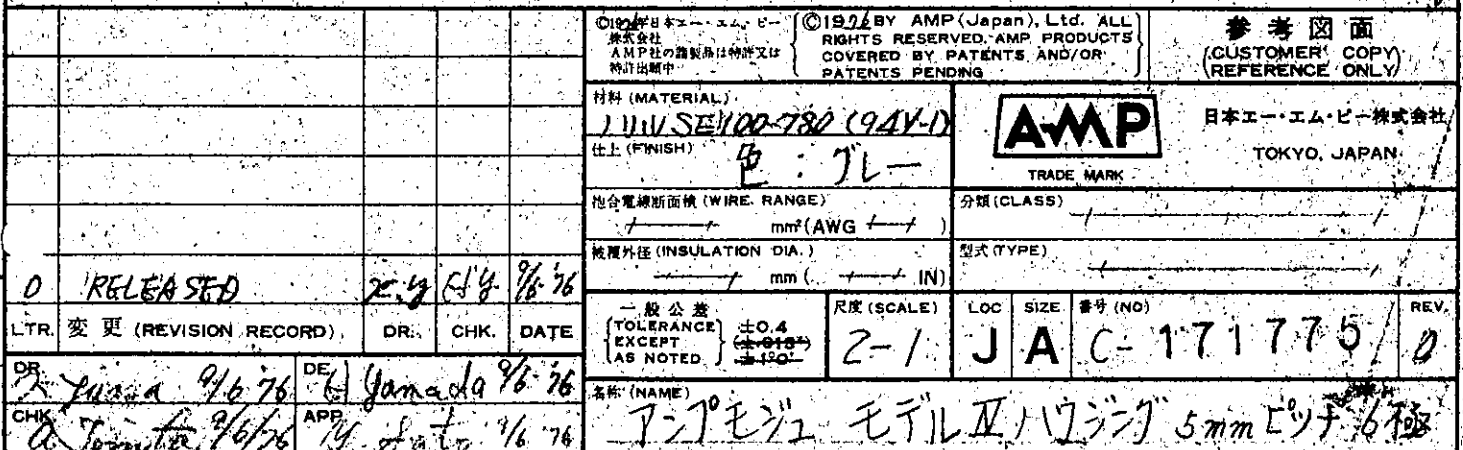 ©1976年日本エー・エム・ピー株式会社
AMP社の諸製品は特許又は
特許出願中
©1976 BY AMP (Japan), Ltd. ALL
RIGHTS RESERVED. AMP PRODUCTS
COVERED BY PATENTS AND/OR
PATENTS PENDING
参考図面
(CUSTOMER COPY)
(REFERENCE ONLY)
材料 (MATERIAL)
SE100-780 (94V-1)
仕上 (FINISH)
色:グレー
AMP
TRADE MARK
日本エー・エム・ピー株式会社
TOKYO, JAPAN
電線断面積 (WIRE RANGE)
mm² (AWG )
分類 (CLASS)
被覆外径 (INSULATION DIA.)
mm ( IN)
型式 (TYPE)
0 RELEASED 9/6 '76
LTR. 変更 (REVISION RECORD) DR. CHK. DATE
一般公差
TOLERANCE
EXCEPT
AS NOTED
±0.4
尺度 (SCALE)
2-1
LOC
J
SIZE
A
番号 (NO)
C-171775
REV.
0
DR. 9/6 '76
DE H Yamada 9/6 '76
CHK 9/6/76
APP 9/6 '76
名称 (NAME)
アンプモジュ モデルIV ハウジング 5mm ピッチ 6極